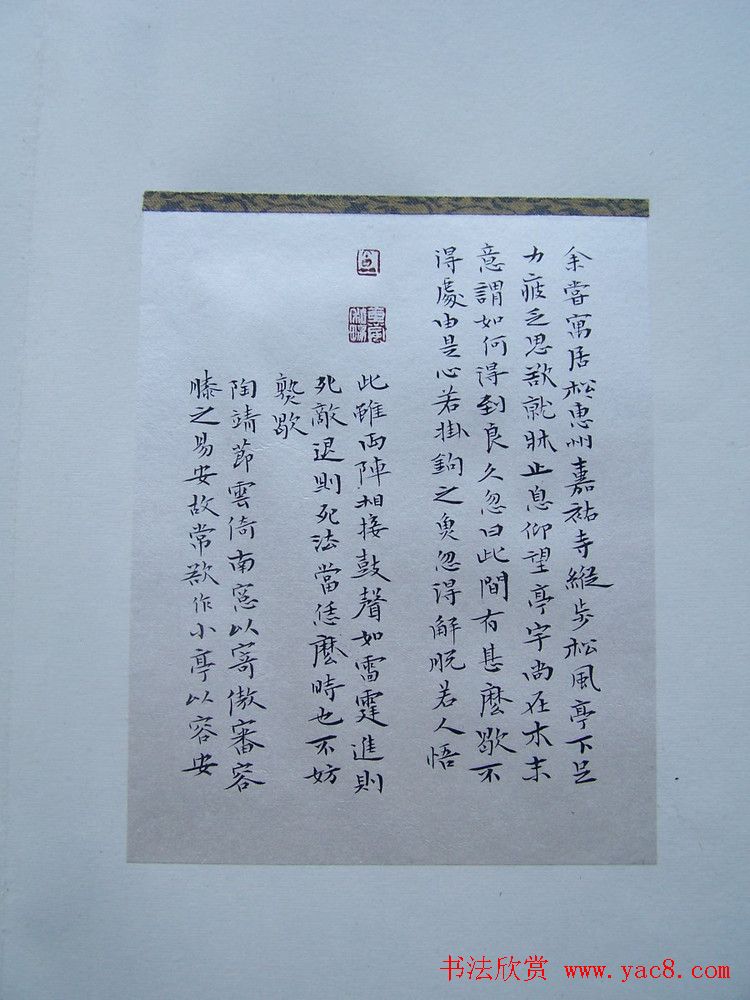 余嘗寓居扵惠州嘉祐寺縱步松風亭下足
力疲乏思欲就牀止息仰望亭宇尚在木末
意謂如何得到良久忽曰此間有甚麼歇不
得處由是心若掛鉤之魚忽得解脫若人悟
此雖兩陣相接鼓聲如雷霆進則
死敵退則死法當恁麼時也不妨
熟歇
陶靖節雲倚南窓以寄傲審容
膝之易安故常欲作小亭以容安
书法欣赏 www.yac8.com